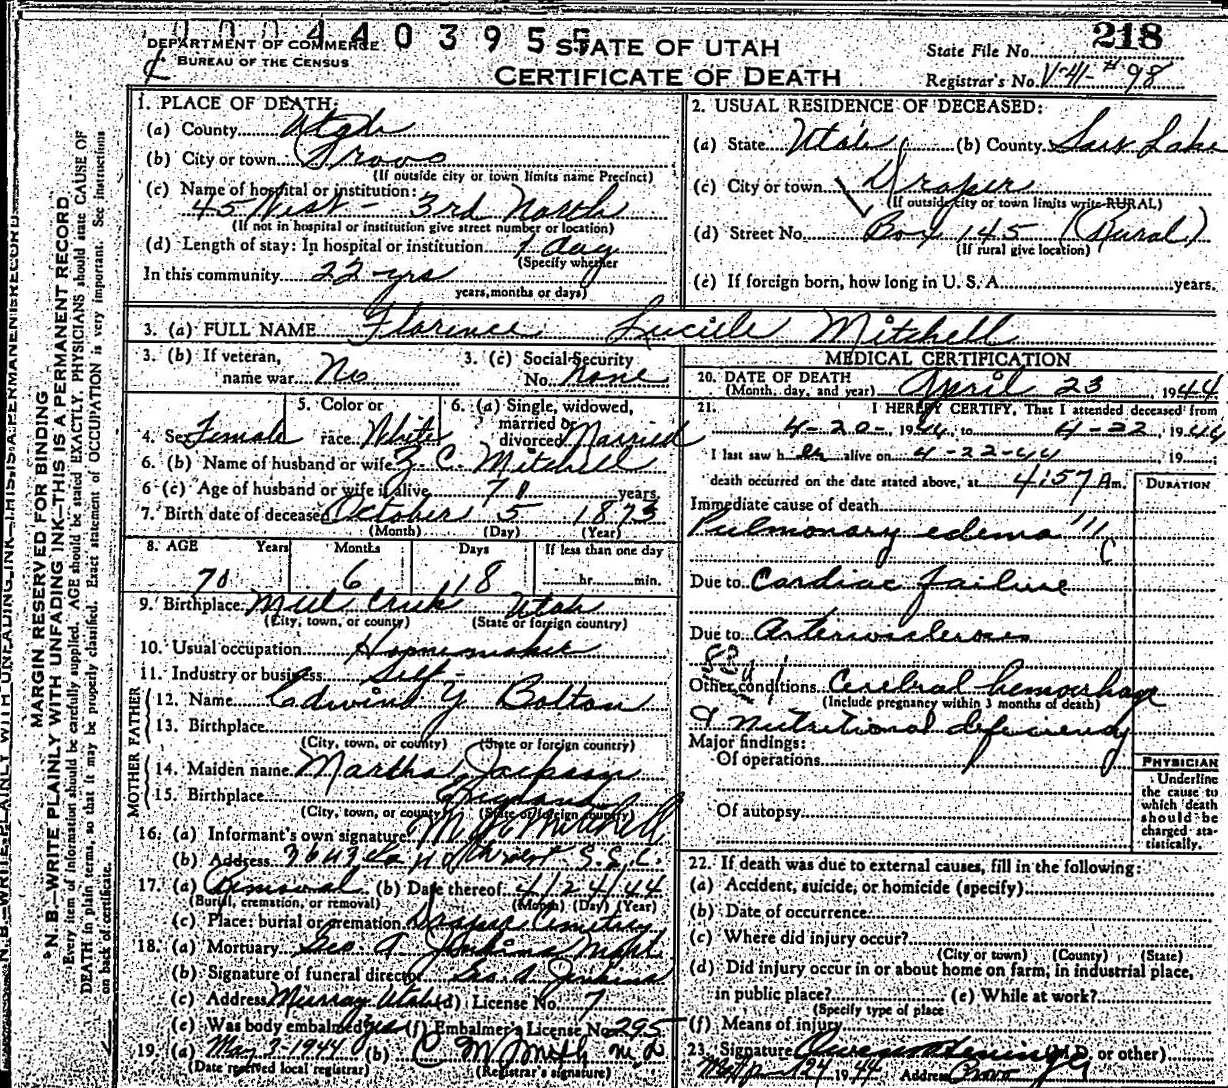 0004403955
DEPARTMENT OF COMMERCE
BUREAU OF THE CENSUS
STATE OF UTAH
CERTIFICATE OF DEATH
State File No. 218
Registrar's No. V-41-#98
MARGIN RESERVED FOR BINDING
N. B.—WRITE PLAINLY WITH UNFADING INK—THIS IS A PERMANENT RECORD
Every item of information should be carefully supplied. AGE should be stated EXACTLY. PHYSICIANS should state CAUSE OF
DEATH in plain terms, so that it may be properly classified. Exact statement of OCCUPATION is very important. See instructions
on back of certificate.
1. PLACE OF DEATH:
(a) County Utah
(b) City or town Provo
(If outside city or town limits name Precinct)
(c) Name of hospital or institution:
45 West - 3rd North
(If not in hospital or institution give street number or location)
(d) Length of stay: In hospital or institution 1 day
(Specify whether
In this community 22 yrs
years, months or days)
2. USUAL RESIDENCE OF DECEASED:
(a) State Utah (b) County Salt Lake
(c) City or town Draper
(If outside city or town limits write RURAL)
(d) Street No. Box 145 (Rural)
(If rural give location)
(e) If foreign born, how long in U. S. A. years.
3. (a) FULL NAME Florence Lucile Mitchell
3. (b) If veteran, name war No
3. (c) Social Security No. none
4. Sex Female
5. Color or race White
6. (a) Single, widowed, married or divorced Married
6. (b) Name of husband or wife Z. C. Mitchell
6 (c) Age of husband or wife if alive 71 years.
7. Birth date of deceased October 5 1873
(Month) (Day) (Year)
8. AGE Years Months Days If less than one day
70 6 18 hr. min.
9. Birthplace Mill Creek Utah
(City, town, or county) (State or foreign country)
10. Usual occupation Homemaker
11. Industry or business Self-
FATHER
12. Name Edwind Y Bolton
13. Birthplace
(City, town, or county) (State or foreign country)
MOTHER
14. Maiden name Martha Jackson
15. Birthplace England
(City, town, or county) (State or foreign country)
16. (a) Informant's own signature Mitchell
(b) Address S.L.C.
17. (a) Removal (b) Date thereof 4/24/44
(Burial, cremation, or removal) (Month) (Day) (Year)
(c) Place: burial or cremation Draper Cemetery
18. (a) Mortuary Geo. A Jenkins Mort
(b) Signature of funeral director Geo. A Jenkins
(c) Address Murray Utah (d) License No. 7
(e) Was body embalmed? yes (f) Embalmer's License No. 295
19. (a) May 3-1944 (b) C M Smith M D
(Date received local registrar) (Registrar's signature)
MEDICAL CERTIFICATION
20. DATE OF DEATH
(Month, day, and year) April 23 1944
21. I HEREBY CERTIFY, That I attended deceased from
4-20-, 1944, to 4-22, 1944
I last saw her alive on 4-22-44 19
death occurred on the date stated above, at 4:57 A m.
DURATION
Immediate cause of death
Pulmonary edema
Due to Cardiac failure
Due to Arteriosclerosis
Other conditions Cerebral hemorrhage
(Include pregnancy within 3 months of death)
& nutritional deficiency
Major findings:
Of operations
Of autopsy
PHYSICIAN
Underline
the cause to
which death
should be
charged sta-
tistically.
22. If death was due to external causes, fill in the following:
(a) Accident, suicide, or homicide (specify)
(b) Date of occurrence
(c) Where did injury occur?
(City or town) (County) (State)
(d) Did injury occur in or about home on farm, in industrial place,
in public place? (e) While at work?
(Specify type of place
(f) Means of injury
23. Signature (M.D. or other)
24 1944 Address Provo